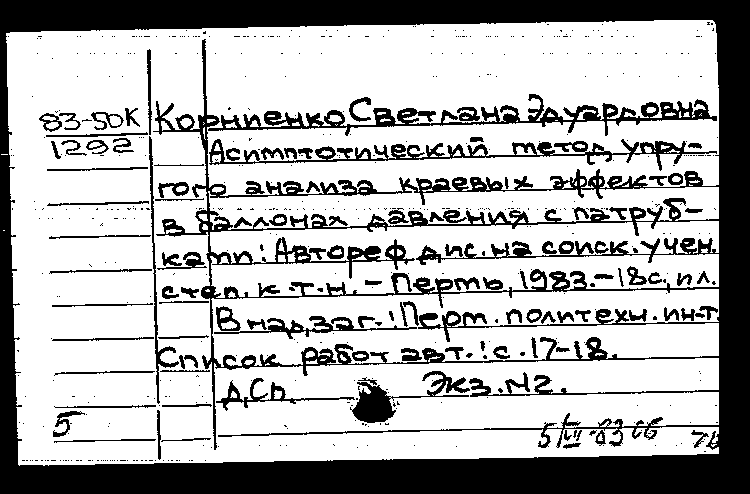 83-5ДК Корниенко, Светлана Эдуардовна.
1292 Асимптотический метод упру-
гого анализа краевых эффектов
в баллонах давления с патруб-
ками: Автореф. дис. на соиск. учен.
степ. к.т.н. - Пермь, 1983. - 18с, ил.
В надзаг.: Перм. политехн. ин-т.
Список работ авт.: с. 17-18.
ДСП. Экз. N2.
5